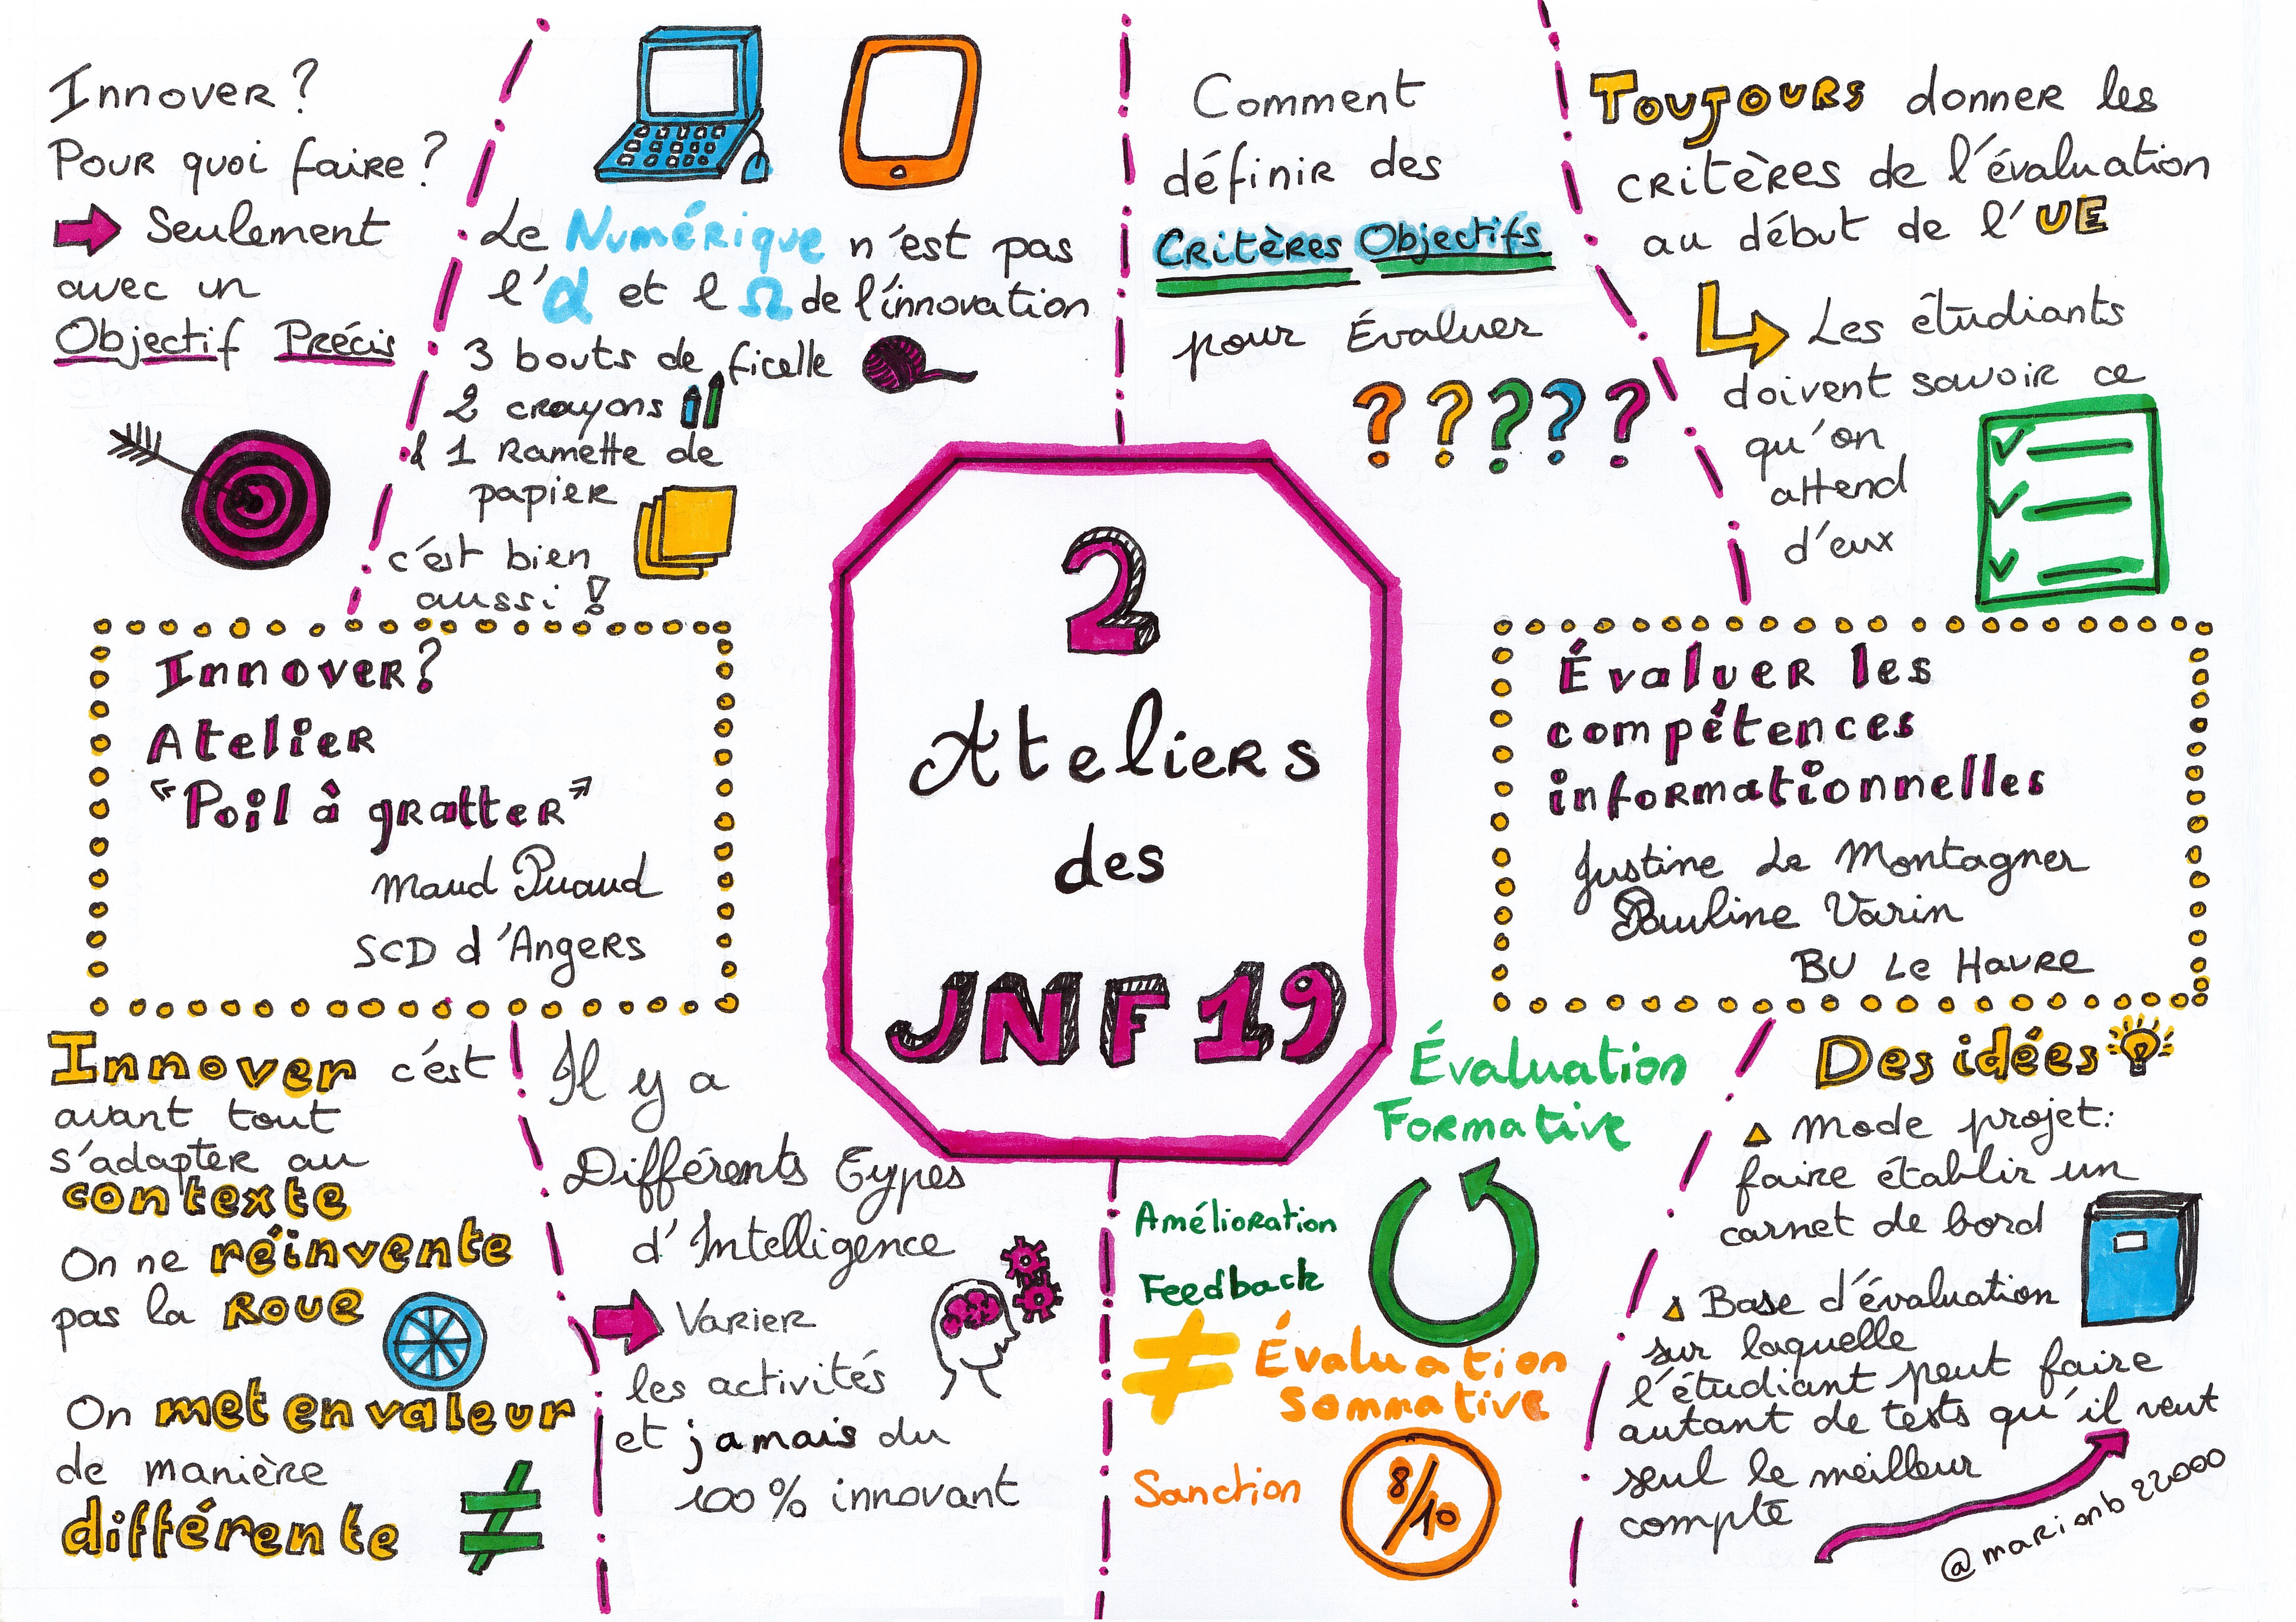 Innover?
Pour quoi faire?
Seulement
avec un
Objectif Précis
Le Numérique n'est pas
l'α et l Ω de l'innovation
3 bouts de ficelle
2 crayons
& 1 Ramette de
papier
c'est bien
aussi !
Comment
définir des
Critères Objectifs
pour Évaluer
? ? ? ? ?
Toujours donner les
critères de l'évaluation
au début de l'UE
Les étudiants
doivent savoir ce
qu'on
attend
d'eux
Innover?
Atelier
"Poil à gratter"
Maud Puaud
SCD d'Angers
2
Ateliers
des
JNF19
Évaluer les
compétences
informationnelles
Justine Le Montagner
Pauline Varin
BU Le Havre
Innover c'est
avant tout
s'adapter au
contexte
On ne réinvente
pas la roue
On met en valeur
de manière
différente
≠
Il y a
Différents Types
d'Intelligence
Varier
les activités
et jamais du
100% innovant
Évaluation
Formative
Amélioration
Feedback
≠ Évaluation
Sommative
Sanction
8/10
Des idées
Mode projet:
faire établir un
carnet de bord
Base d'évaluation
sur laquelle
l'étudiant peut faire
autant de tests qu'il veut
seul le meilleur
compte
@marionb22000